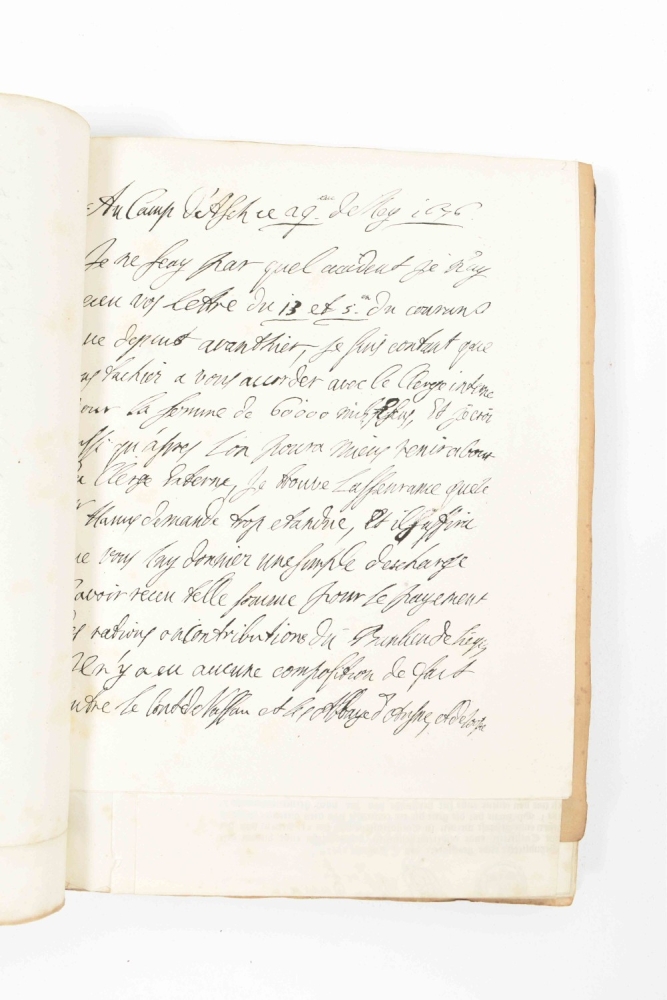 Au Camp d'Asch ce 29.me de May 1696
Je ne scay par quel accident je n'ay
receu vos lettre du 13 et 5.me du courant
que depuis avanthier, je suis contant que
tachier a vous accorder avec le Clerge interne
pour la somme de 60000 Et
aussi qu'apres l'on poura mieux venir a bout
Clerge Externe, Je trouve l'asseurance que le
demande trop etandue, Et il suffira
que vous luy donnier une simple descharge
d'avoir receu telle somme pour le payement
des rations ou contributions du
Il n'y a eu aucune composition de fait
entre le et